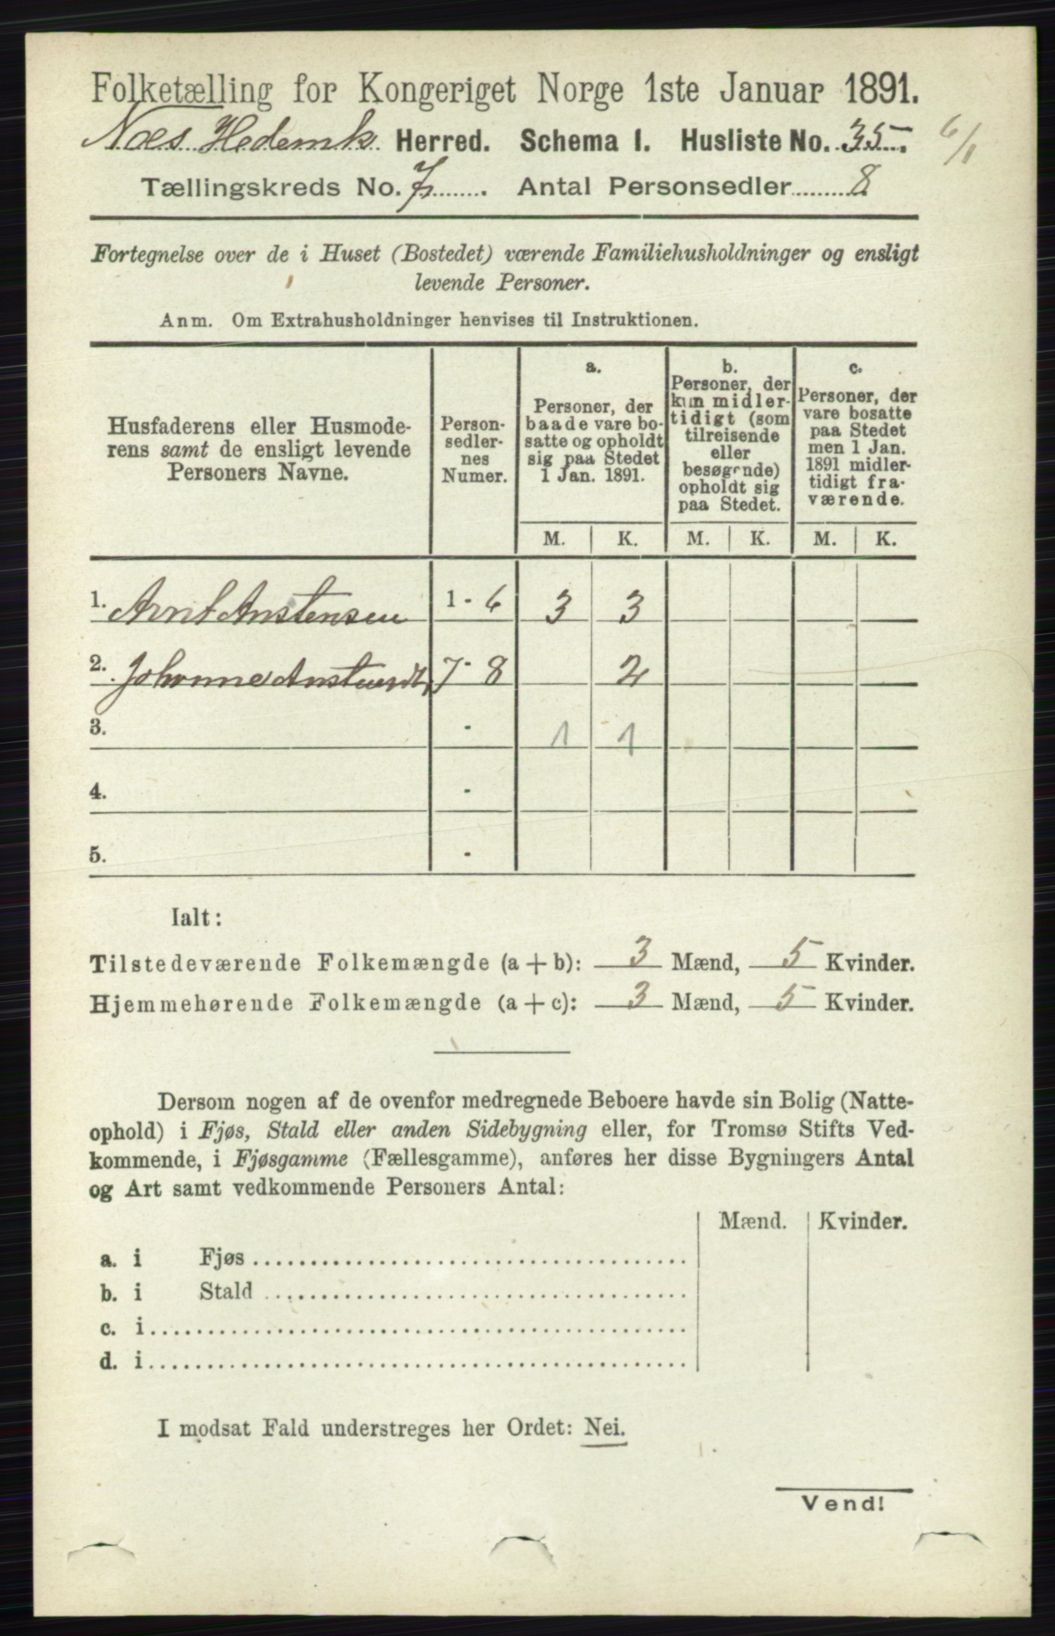 Folketælling for Kongeriget Norge 1ste Januar 1891.
Næs Hedemk. Herred. Schema 1. Husliste No. 35. 6/1
Tællingskreds No. 7. Antal Personsedler 8
Fortegnelse over de i Huset (Bostedet) værende Familiehusholdninger og ensligt
levende Personer.
Anm. Om Extrahusholdninger henvises til Instruktionen.
Husfaderens eller Husmode-
rens samt de ensligt levende
Personers Navne.
Person-
sedler-
nes
Numer.
a.
Personer, der
baade vare bo-
satte og opholdt
sig paa Stedet
1 Jan. 1891.
b.
Personer, der
kun midler-
tidigt (som
tilreisende
eller
besøgende)
opholdt sig
paa Stedet.
c.
Personer, der
vare bosatte
paa Stedet
men 1 Jan.
1891 midler-
tidigt fra-
værende.
M. K. M. K. M. K.
1. Arnt Anstensen 1 - 6 3 3
2. Johanne Anstensdt. 7 - 8 2
3. - 1 1
4. -
5. -
Ialt:
Tilstedeværende Folkemængde (a + b): 3 Mænd, 5 Kvinder.
Hjemmehørende Folkemængde (a + c): 3 Mænd, 5 Kvinder.
Dersom nogen af de ovenfor medregnede Beboere havde sin Bolig (Natte-
ophold) i Fjøs, Stald eller anden Sidebygning eller, for Tromsø Stifts Ved-
kommende, i Fjøsgamme (Fællesgamme), anføres her disse Bygningers Antal
og Art samt vedkommende Personers Antal:
Mænd. Kvinder.
a. i Fjøs
b. i Stald
c. i
d. i
I modsat Fald understreges her Ordet: Nei.
Vend!